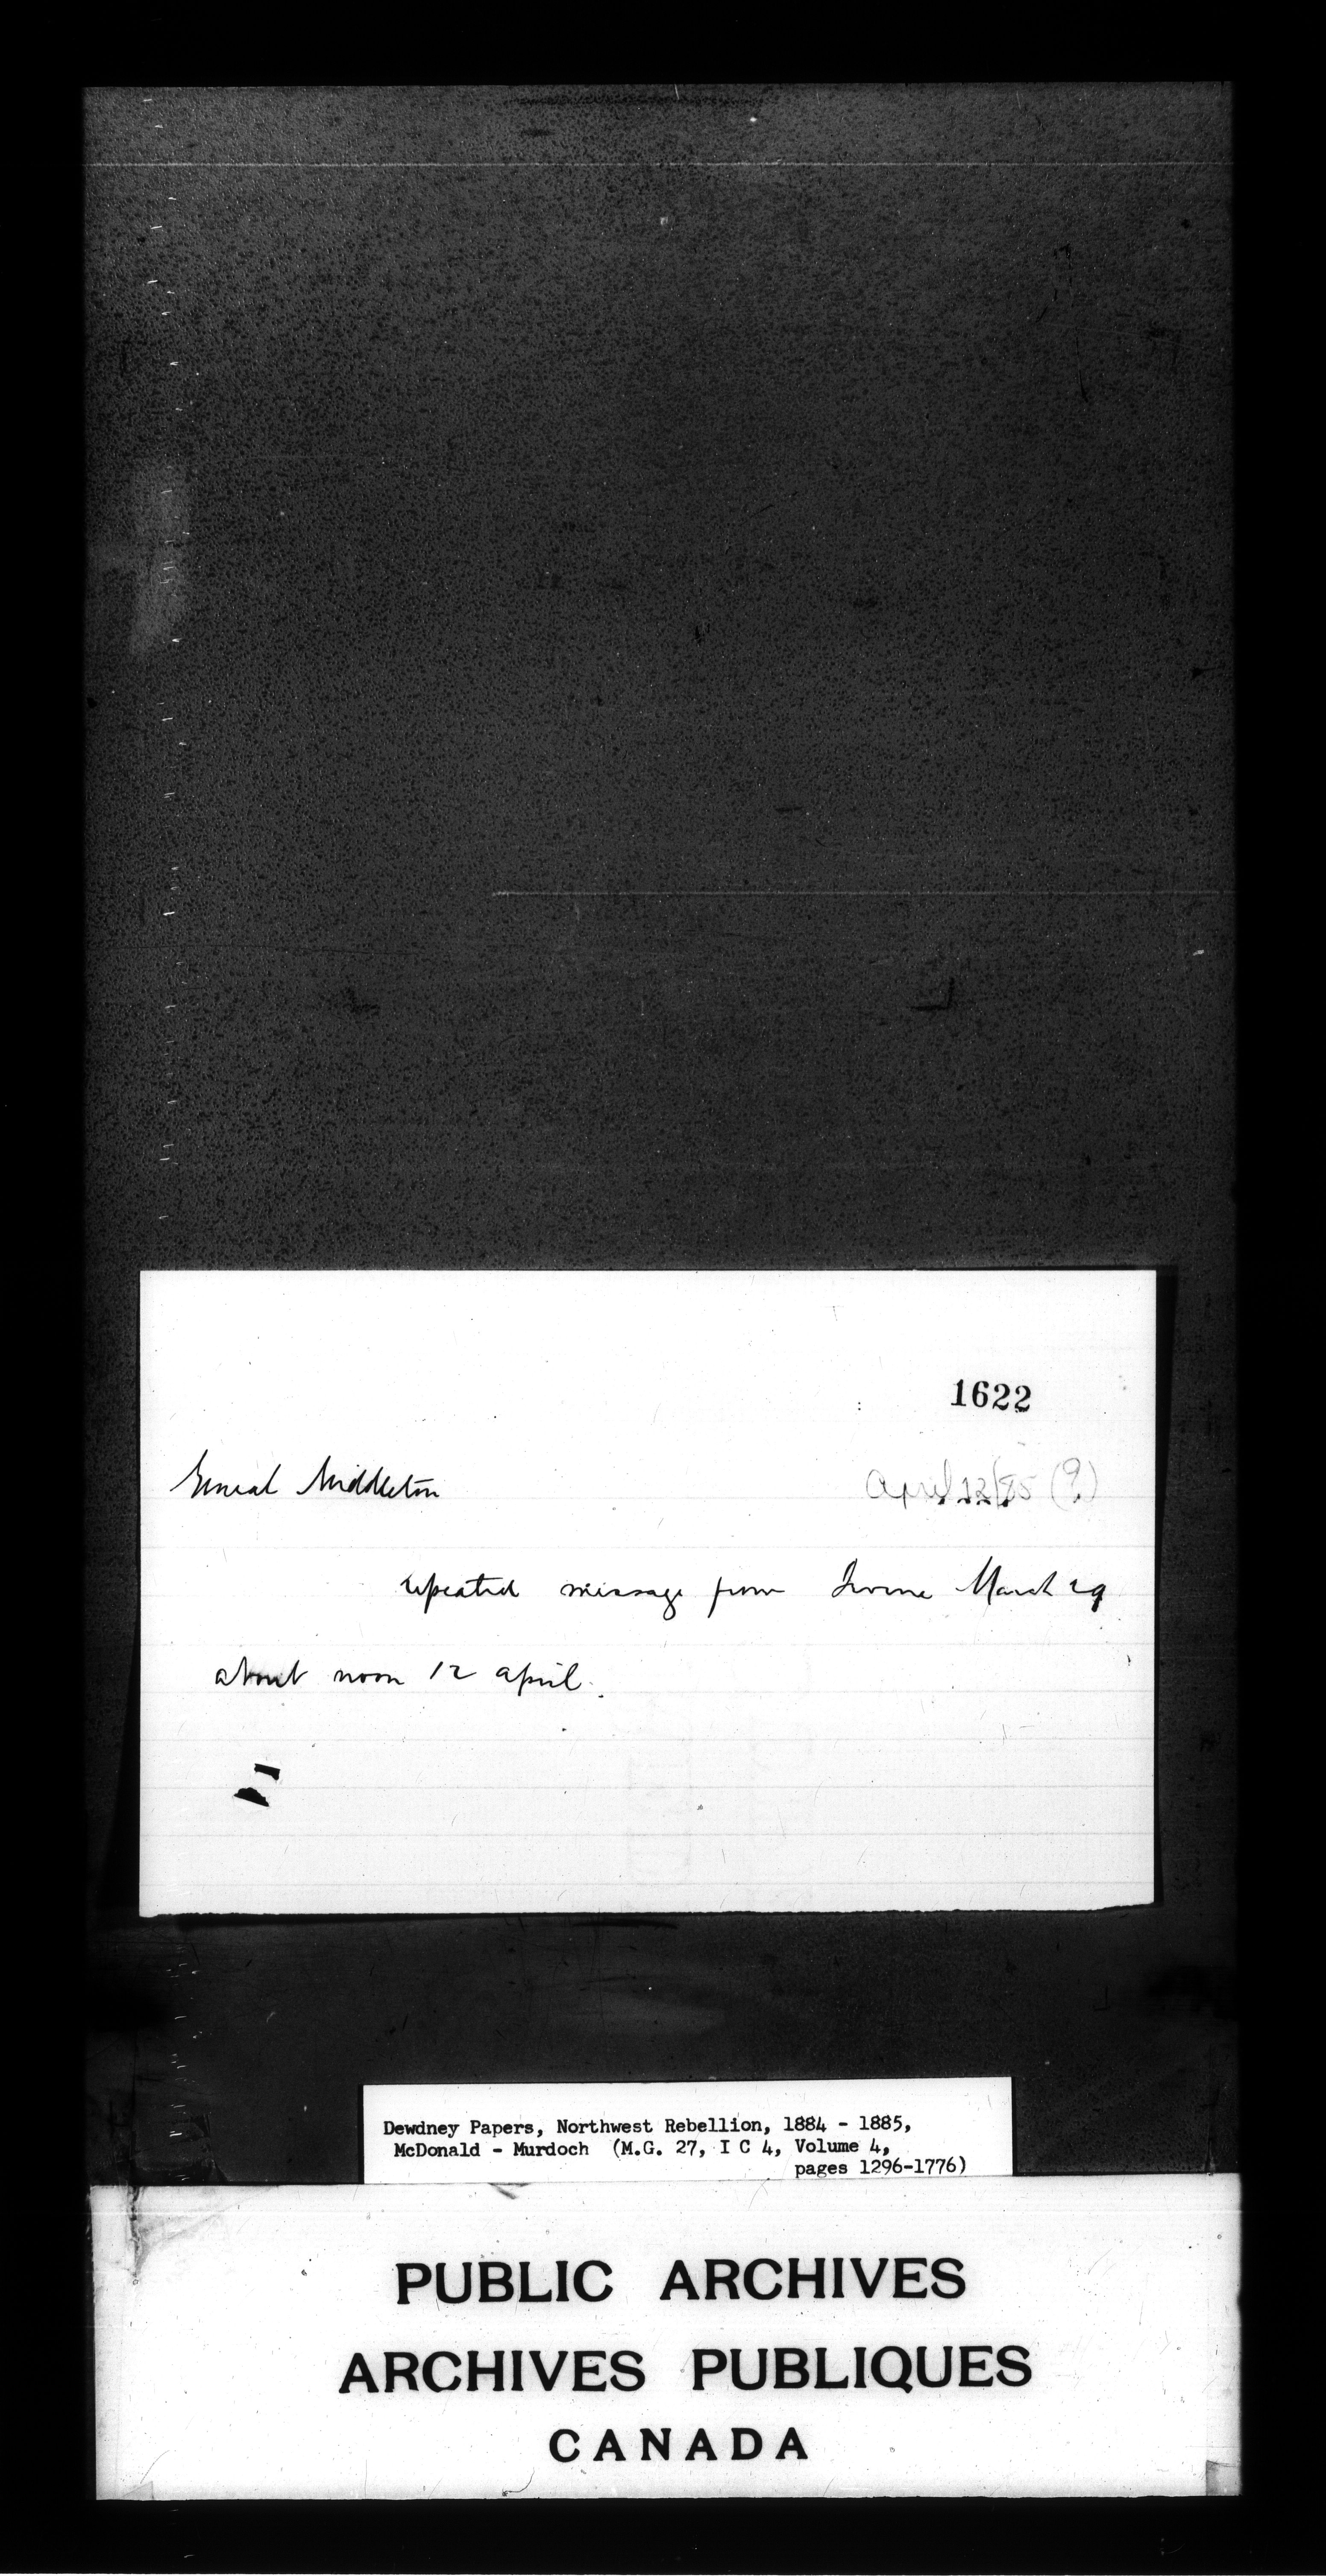 1622
General Middleton
April 12/85 (?)
repeated message from Irvine March 29
about noon 12 april.
Dewdney Papers, Northwest Rebellion, 1884 - 1885,
McDonald - Murdoch (M.G. 27, I C 4, Volume 4,
pages 1296-1776)
PUBLIC ARCHIVES
ARCHIVES PUBLIQUES
CANADA